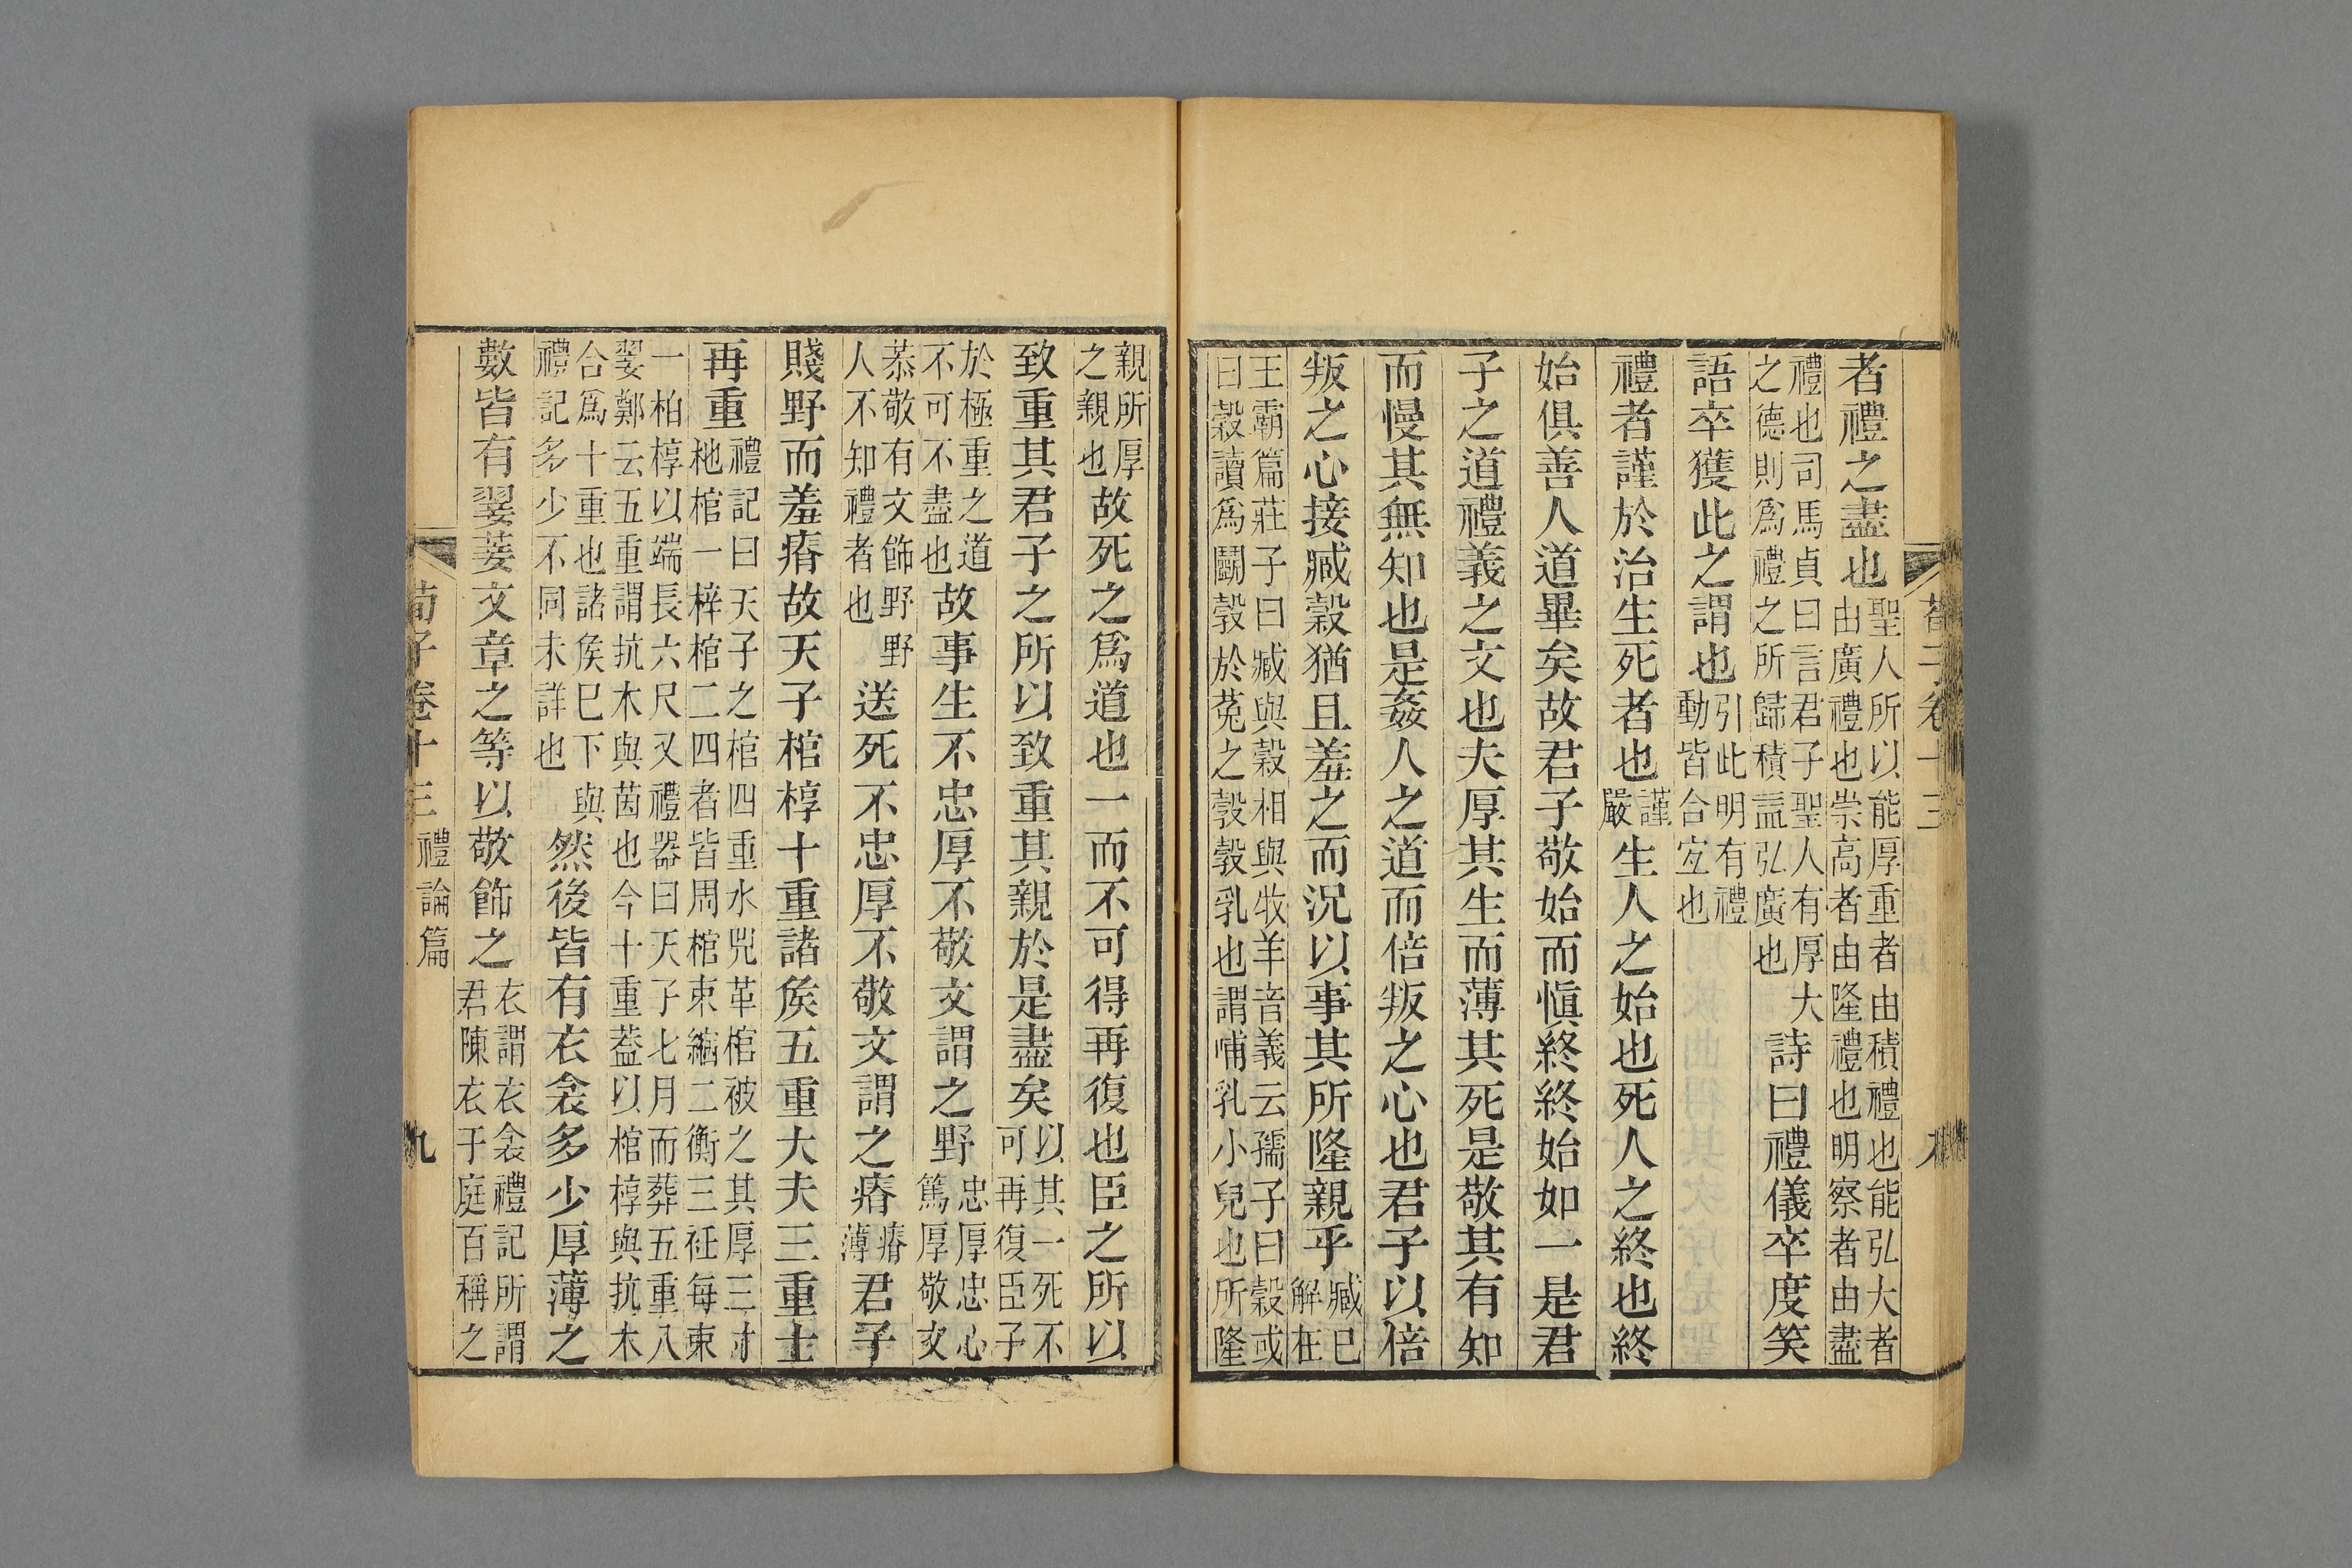 荀子卷十三 八
者禮之盡也聖人所以能厚重者由積禮也能弘大者由廣禮也崇高者由隆禮也明察者由盡
禮也司馬貞曰言君子聖人有厚大之德則爲禮之所歸積益弘廣也詩曰禮儀卒度笑
語卒獲此之謂也引此明有禮動皆合宐也
禮者謹於治生死者也謹嚴生人之始也死人之終也終
始俱善人道畢矣故君子敬始而愼終終始如一是君
子之道禮義之文也夫厚其生而薄其死是敬其有知
而慢其無知也是姦人之道而倍叛之心也君子以倍
叛之心接臧穀猶且羞之而況以事其所隆親乎臧巳解在
王霸篇莊子曰臧與穀相與牧羊音義云孺子曰穀或曰穀讀爲鬭穀於菟之穀穀乳也謂哺乳小兒也所隆
親所厚之親也故死之爲道也一而不可得再復也臣之所以
致重其君子之所以致重其親於是盡矣以其一死不可再復臣子
於極重之道不可不盡也故事生不忠厚不敬文謂之野忠厚忠心篤厚敬文
恭敬有文飾野野人不知禮者也送死不忠厚不敬文謂之瘠瘠薄君子
賤野而羞瘠故天子棺椁十重諸矦五重大夫三重士
再重禮記曰天子之棺四重水兕革棺被之其厚三寸杝棺一梓棺二四者皆周棺束縮二衡三衽每束
一柏椁以端長六尺又禮器曰天子七月而葬五重八翣鄭云五重謂抗木與茵也今十重葢以棺椁與抗木
合爲十重也諸矦巳下與禮記多少不同未詳也然後皆有衣衾多少厚薄之
數皆有翣菨文章之等以敬飾之衣謂衣衾禮記所謂君陳衣于庭百稱之
荀子卷十三 禮論篇 九